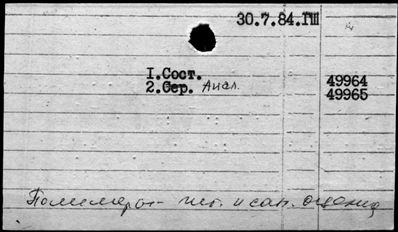 30.7.84.ГШ
1.Сост. 49964
2.Сер. Анал. 49965
Полимеры - гиг. и сан. оценка